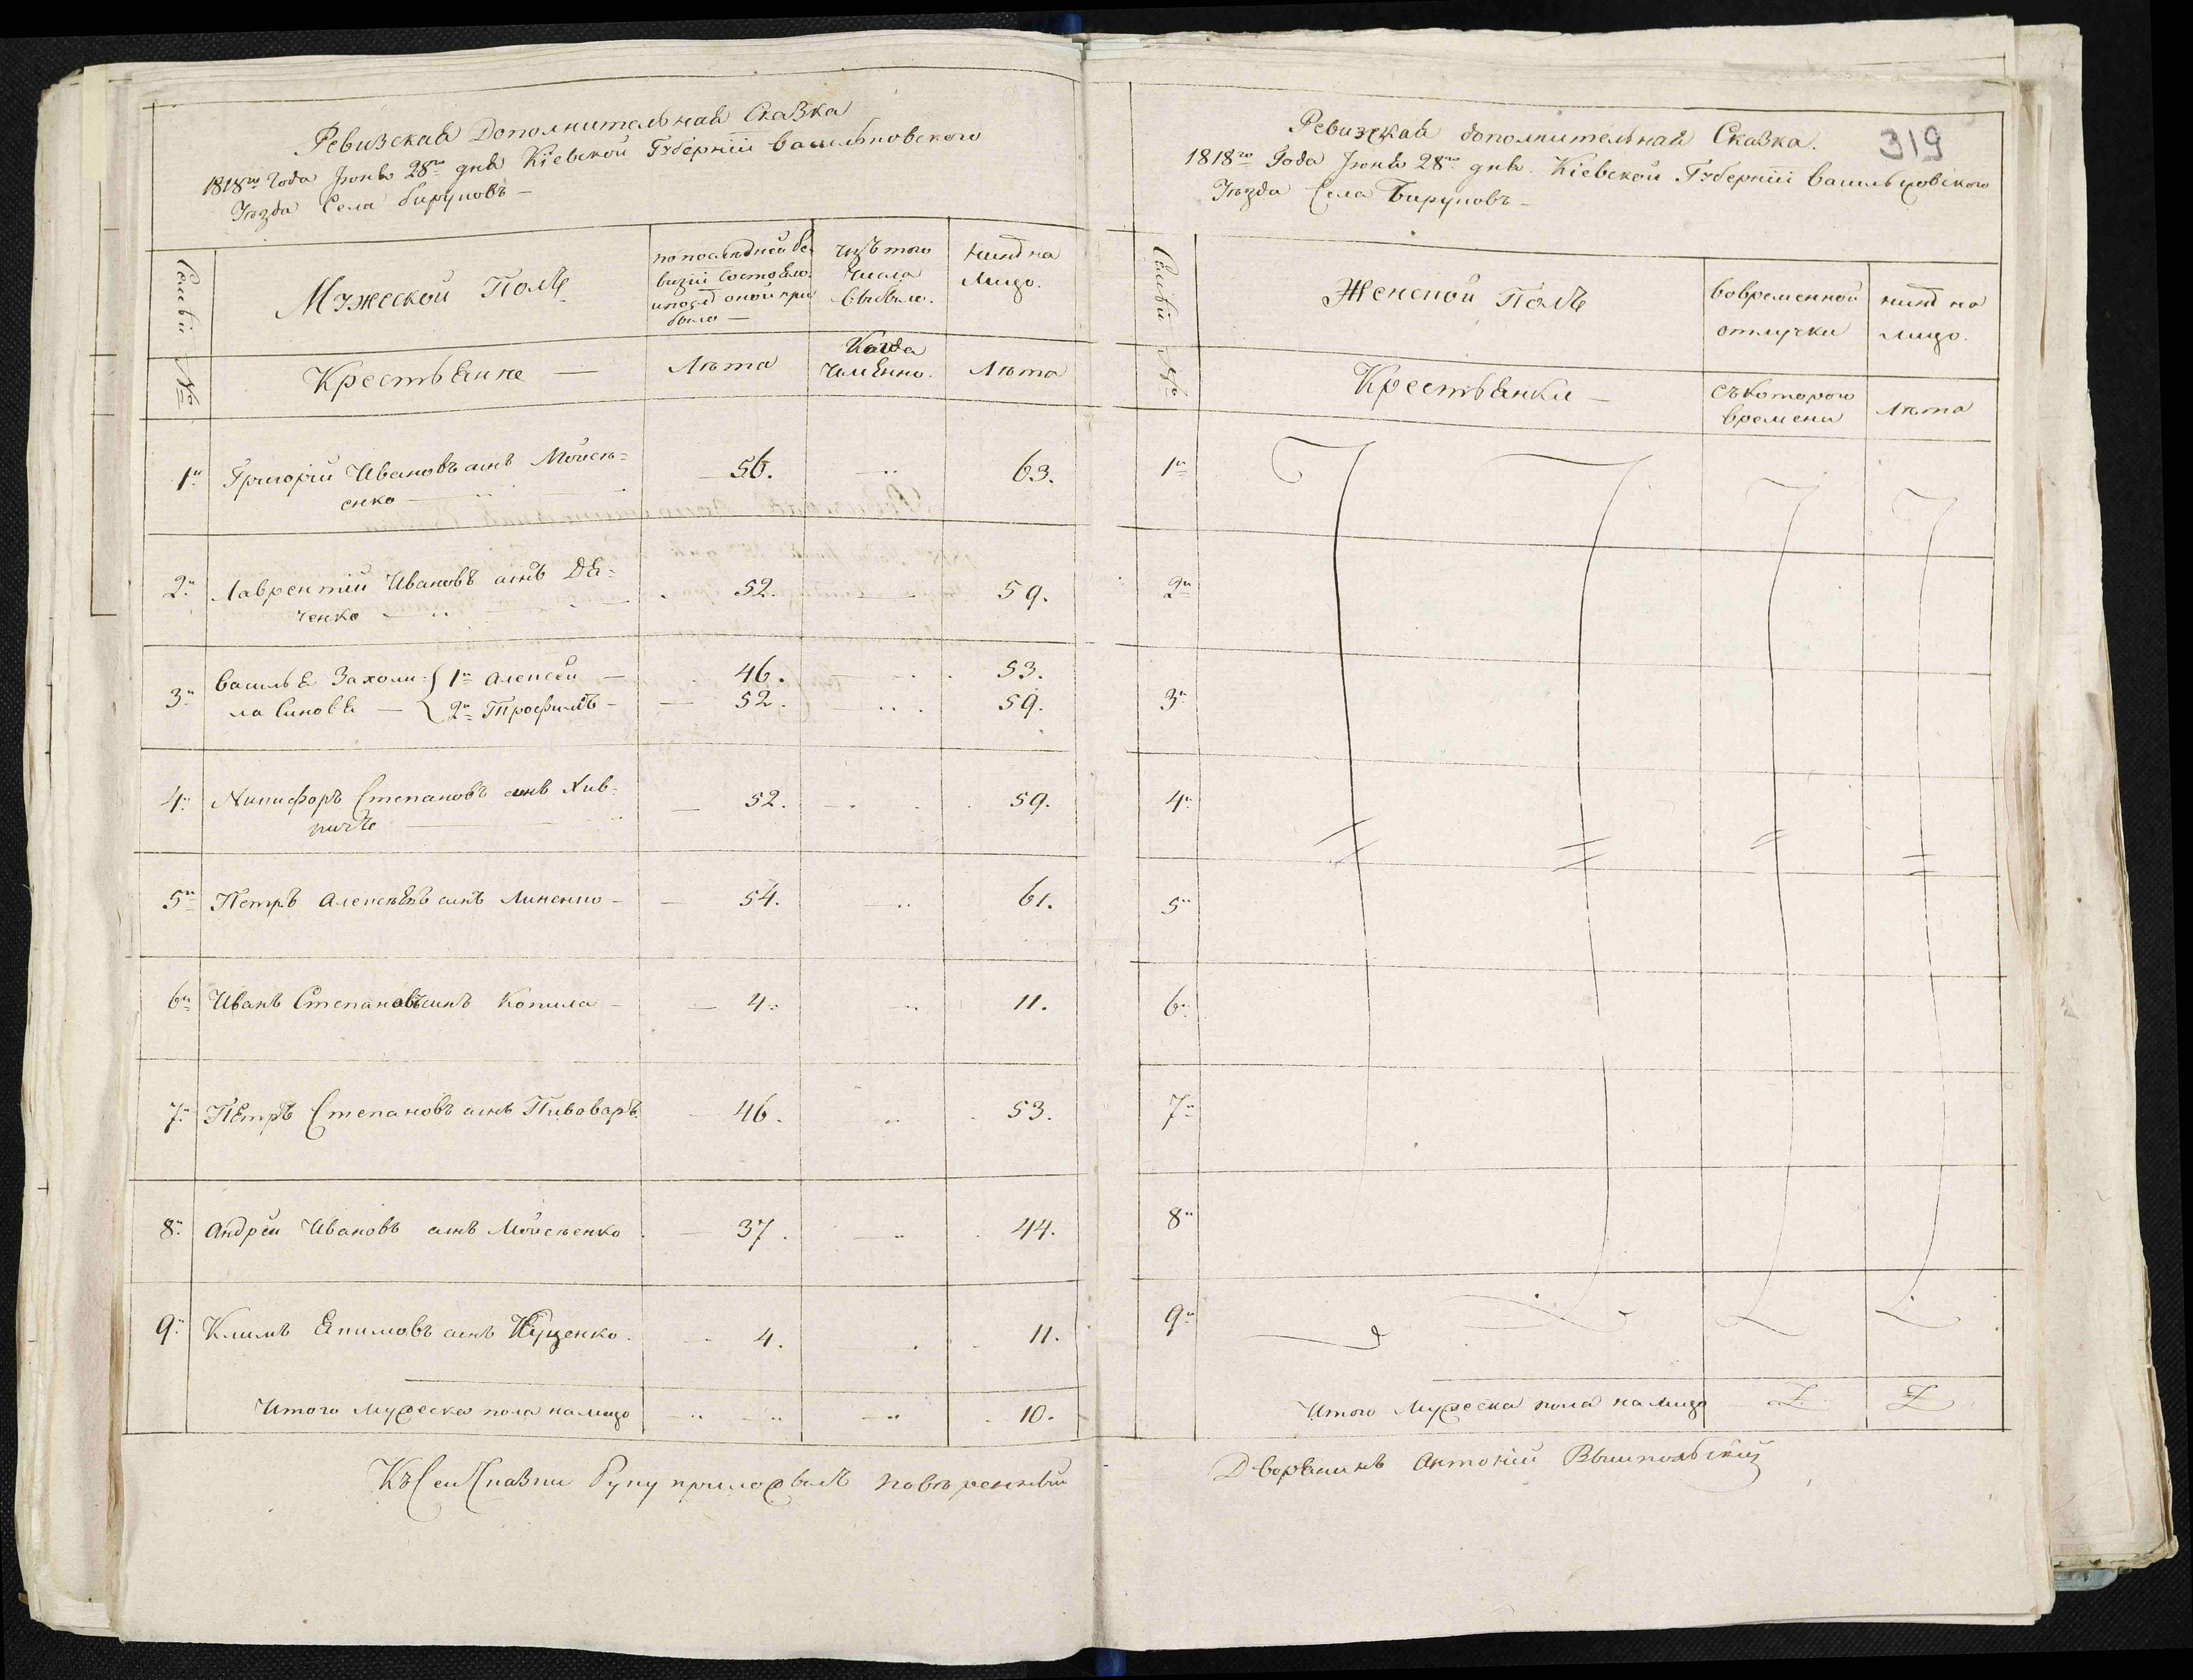 Ревизская Дополнительная Сказка
1818го Года Июня 28го дня Кіевской Губерніи васильковского
Уезда Села
Семьи №
Мужеской Полъ
по последней ре
визіи состояло
и после оной при
было —
изъ того
числа
выбыло.
ныне на
лицо.
Крестьяне —
Лѣта
Когда
именно.
Лѣта
1й Григорій Ивановъ синъ Мойсѣ=
енко
56. 63.
2й Лаврентій Ивановъ синъ Дя=
ченко
52. 59.
3й Василья Захоли= 1й Алексей — 46. 53.
ла синовья — 2й Трофимъ — 52. 59.
4й Никифоръ Степановъ синъ
52. 59.
5й Петръ Алексѣевъ синъ Линенко — 54. 61.
6й Иванъ Степановъ синъ Копила — 4. 11.
7й Пётръ Степановъ синъ Пивоваръ 46. 53.
8й Андрей Ивановъ синъ Мойсѣенко 37. 44.
9й Климъ Екимовъ синъ Куценко. 4. 11.
Итого мужеска пола налицо 10.
Къ сей сказки Руку приложилъ поверенный
319
Ревизская дополнительная Сказка.
1818го Года Июня 28го дня. Кіевской Губерніи васильковского
Уезда Села
Семьи №
Женской Полъ
вовременной
отлучки
ныне на
лицо.
Крестьянки —
съ которого
времени
Лѣта
1й
2й
3й
4й
5й
6й
7й
8й
9й
Итого мужеска пола налицо
Дворянинъ Антоній Вышпольскій